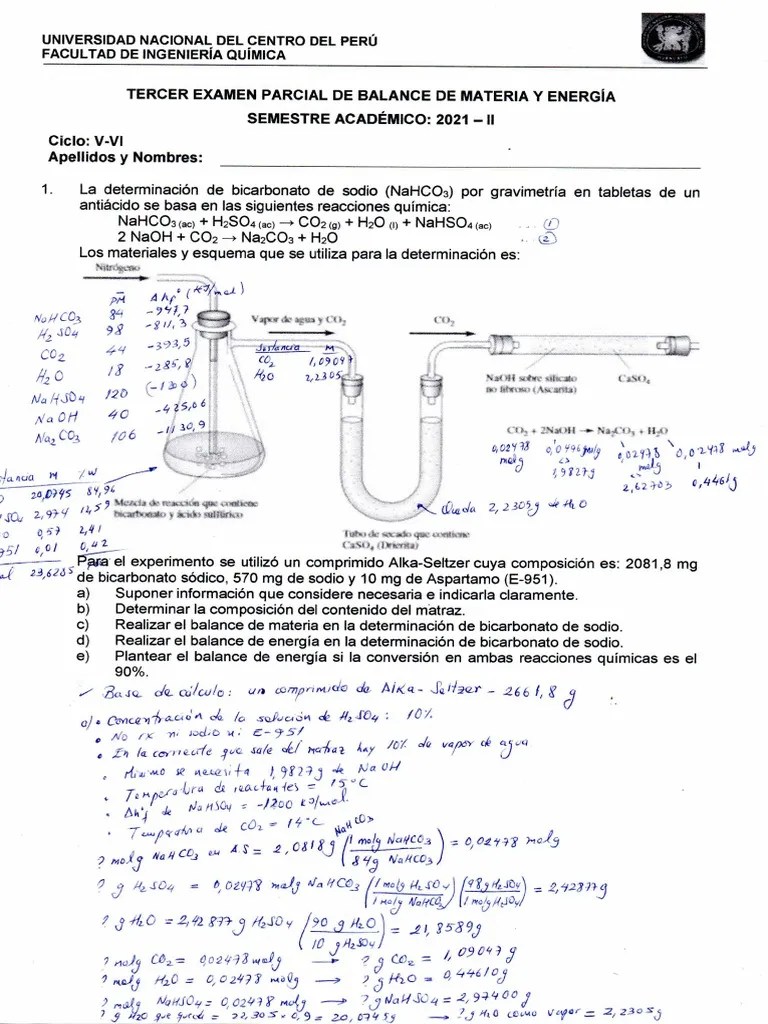 UNIVERSIDAD NACIONAL DEL CENTRO DEL PERÚ
FACULTAD DE INGENIERÍA QUÍMICA
TERCER EXAMEN PARCIAL DE BALANCE DE MATERIA Y ENERGÍA
SEMESTRE ACADÉMICO: 2021 – II
Ciclo: V-VI
Apellidos y Nombres:
1. La determinación de bicarbonato de sodio (NaHCO3) por gravimetría en tabletas de un
antiácido se basa en las siguientes reacciones química:
NaHCO3 (ac) + H2SO4 (ac) → CO2 (g) + H2O (l) + NaHSO4 (ac) ... (1)
2 NaOH + CO2 → Na2CO3 + H2O ... (2)
Los materiales y esquema que se utiliza para la determinación es:
Nitrógeno
PM Δhf° (kJ/mol)
NaHCO3 84 -947,7
H2SO4 98 -811,3
CO2 44 -393,5
H2O 18 -285,8
NaHSO4 120 (-1200)
NaOH 40 -425,06
Na2CO3 106 -1130,9
Vapor de agua y CO2
CO2
Sustancia M
CO2 1,09047
H2O 2,2305
NaOH sobre silicato
no fibroso (Ascarita)
CaSO4
CO2 + 2NaOH → Na2CO3 + H2O
0,02478 molg 0,0496 molg 0,02478 molg 0,02478 molg
1,9827g 2,62703 0,4461g
stancia M %W
20,0745 84,96
SO4 2,974 12,59
0,57 2,41
951 0,01 0,42
al 23,6285
Mezcla de reacción que contiene
bicarbonato y ácido sulfúrico
Queda 2,2305g de H2O
Tubo de secado que contiene
CaSO4 (Drierita)
Para el experimento se utilizó un comprimido Alka-Seltzer cuya composición es: 2081,8 mg
de bicarbonato sódico, 570 mg de sodio y 10 mg de Aspartamo (E-951).
a) Suponer información que considere necesaria e indicarla claramente.
b) Determinar la composición del contenido del matraz.
c) Realizar el balance de materia en la determinación de bicarbonato de sodio.
d) Realizar el balance de energía en la determinación de bicarbonato de sodio.
e) Plantear el balance de energía si la conversión en ambas reacciones químicas es el
90%.
✓ Base de cálculo: un comprimido de Alka-Seltzer - 2661,8 g
a) • Concentración de la solución de H2SO4: 10%
• No rx ni sodio ni E-951
• En la corriente que sale del matraz hay 10% de vapor de agua
• Mínimo se necesita 1,9827g de NaOH
• Temperatura de reactantes = 15°C
• Δhf° de NaHSO4 = -1200 kJ/mol.
• Temperatura de CO2 = 14°C
? molg NaHCO3 en AS = 2,0818g NaHCO3 (1 molg NaHCO3 / 84g NaHCO3) = 0,02478 molg
? g H2SO4 = 0,02478 molg NaHCO3 (1 molg H2SO4 / 1 molg NaHCO3) (98g H2SO4 / 1 molg H2SO4) = 2,42877g
? g H2O = 2,42877 g H2SO4 (90 g H2O / 10 g H2SO4) = 21,8589g
? molg CO2 = 0,02478 molg → ? g CO2 = 1,09047 g
? molg H2O = 0,02478 molg → ? g H2O = 0,44610 g
? molg NaHSO4 = 0,02478 molg → ? g NaHSO4 = 2,97400 g
? g H2O que queda = 22,305 x 0,9 = 20,0745g → ? g H2O como vapor = 2,2305g